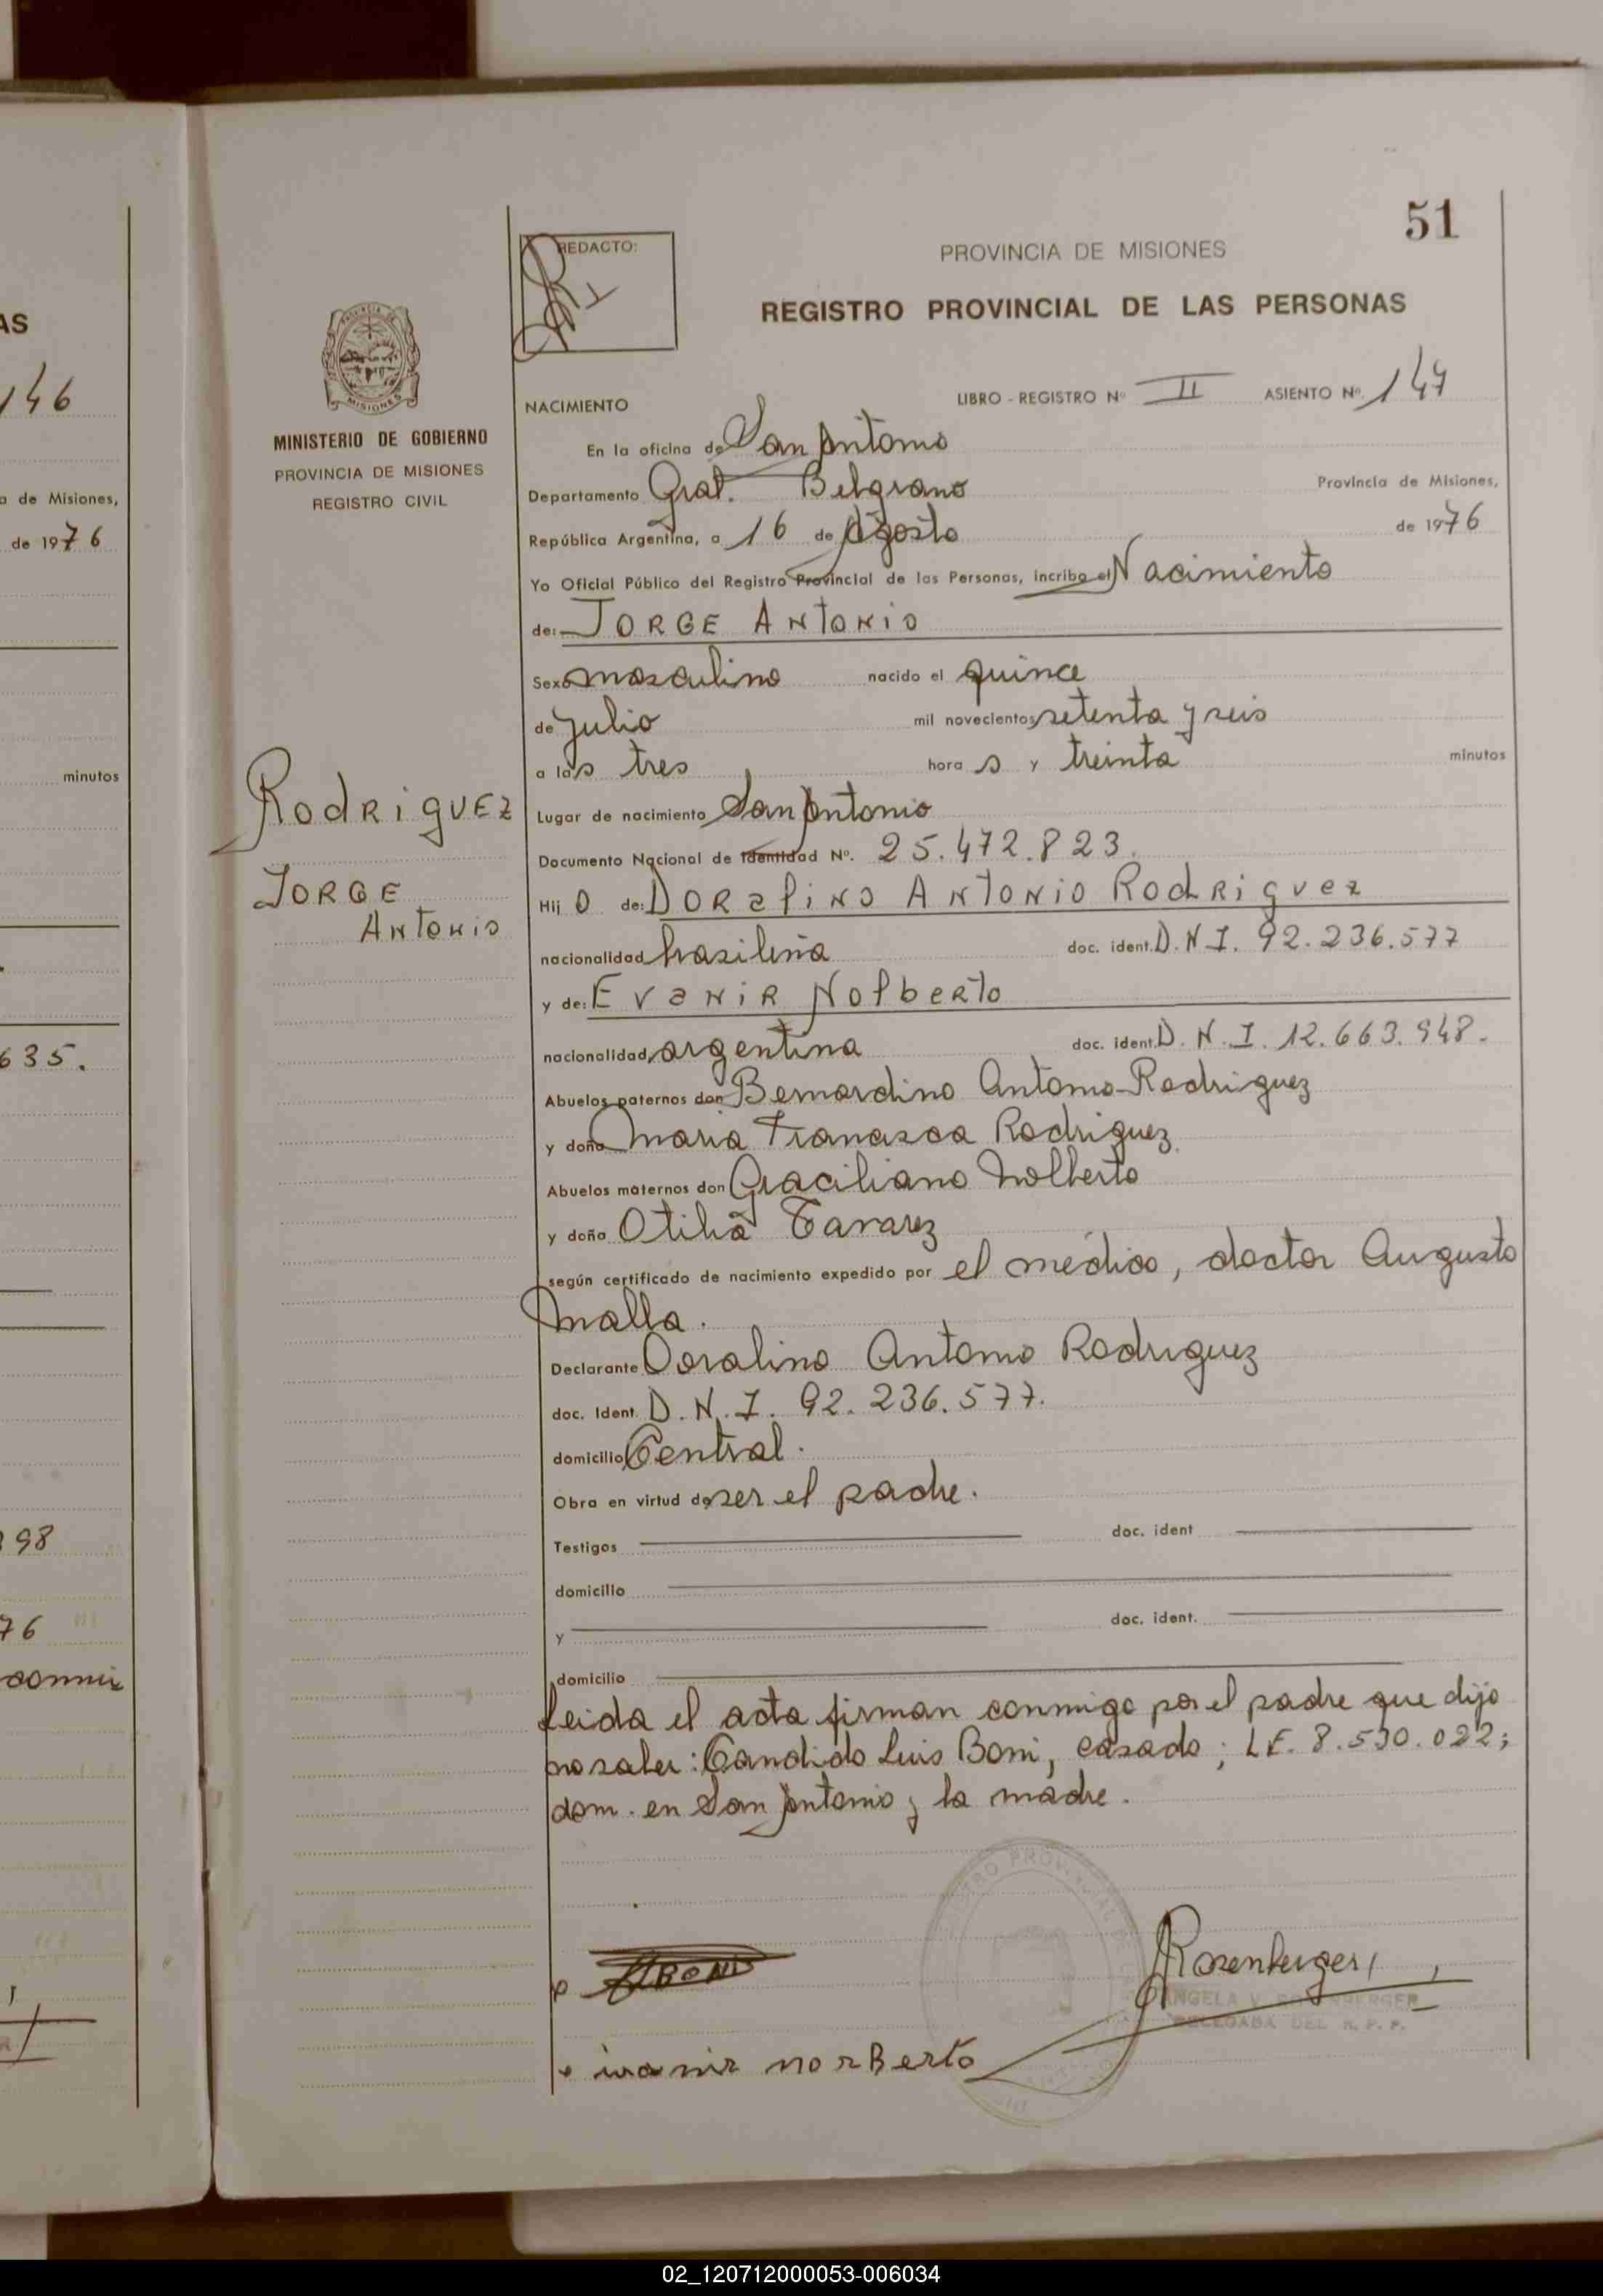 AS
146
a de Misiones,
de 1976
minutos
635.
98
76
R
51
REDACTO:
PROVINCIA DE MISIONES
REGISTRO PROVINCIAL DE LAS PERSONAS
PROVINCIA DE
MISIONES
MINISTERIO DE GOBIERNO
PROVINCIA DE MISIONES
REGISTRO CIVIL
NACIMIENTO LIBRO - REGISTRO Nº II ASIENTO Nº 147
En la oficina de San Antonio
Departamento Gral. Belgrano Provincia de Misiones,
República Argentina, a 16 de Agosto de 1976
Yo Oficial Público del Registro Provincial de las Personas, incribo el Nacimiento
de: JORGE ANTONIO
Sexo masculino nacido el quince
de julio mil novecientos setenta y seis
a las tres horas y treinta minutos
RODRIGUEZ
JORGE
ANTONIO
Lugar de nacimiento San Antonio
Documento Nacional de Identidad Nº. 25.472.823.
Hijo de: DORALINO ANTONIO RODRIGUEZ
nacionalidad brasileña doc. ident. D.N.I. 92.236.577
y de: EVANIR NOLBERTO
nacionalidad argentina doc. ident. D.N.I. 12.663.948.
Abuelos paternos don Bernardino Antonio Rodriguez
y doña Maria Francisca Rodriguez.
Abuelos maternos don Graciliano Nolberto
y doña Otilia Tavarez
según certificado de nacimiento expedido por el médico, doctor Augusto
Malla.
Declarante Doralino Antonio Rodriguez
doc. Ident. D.N.I. 92.236.577.
domicilio Central.
Obra en virtud de ser el padre.
Testigos doc. ident
domicilio
y doc. ident.
domicilio
Leida el acta firman conmigo por el padre que dijo
no saber: Candido Luis Boni, casado; L.E. 8.530.022;
dom. en San Antonio y la madre.
BONI
Rosenberger
ANGELA V. ROSENBERGER
DELEGADA DEL R. P. P.
ivanir norBerto
02_120712000053-006034